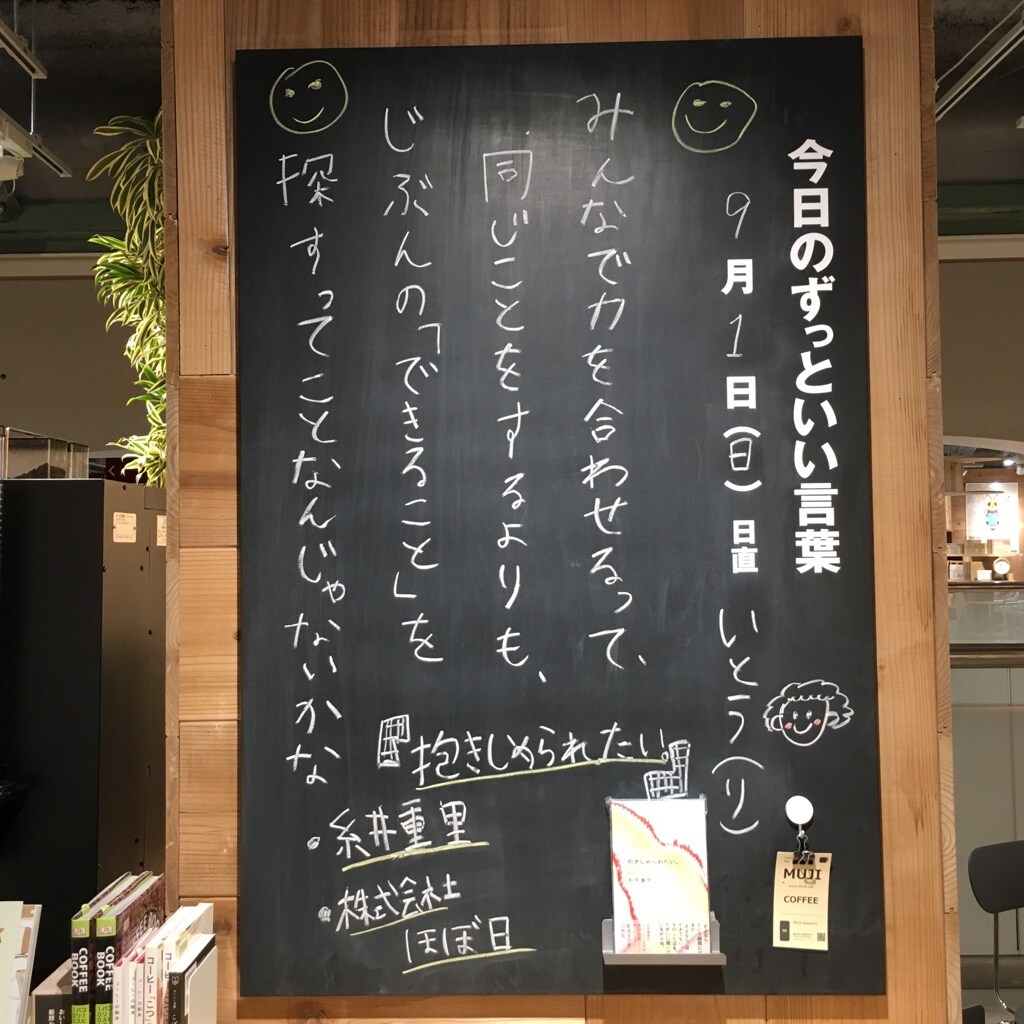 今日のずっといい言葉
9月1日(日)日直 いとう(り)
みんなで力を合わせるって、
同じことをするよりも、
じぶんの「できること」を
探すってことなんじゃないかな
抱きしめられたい。
・糸井重里
・株式会社
ほぼ日
抱きしめられたい。
糸井重里
MUJI
COFFEE
COFFEE
BOOK
COFFEE
BOOK
コーヒー「こつ